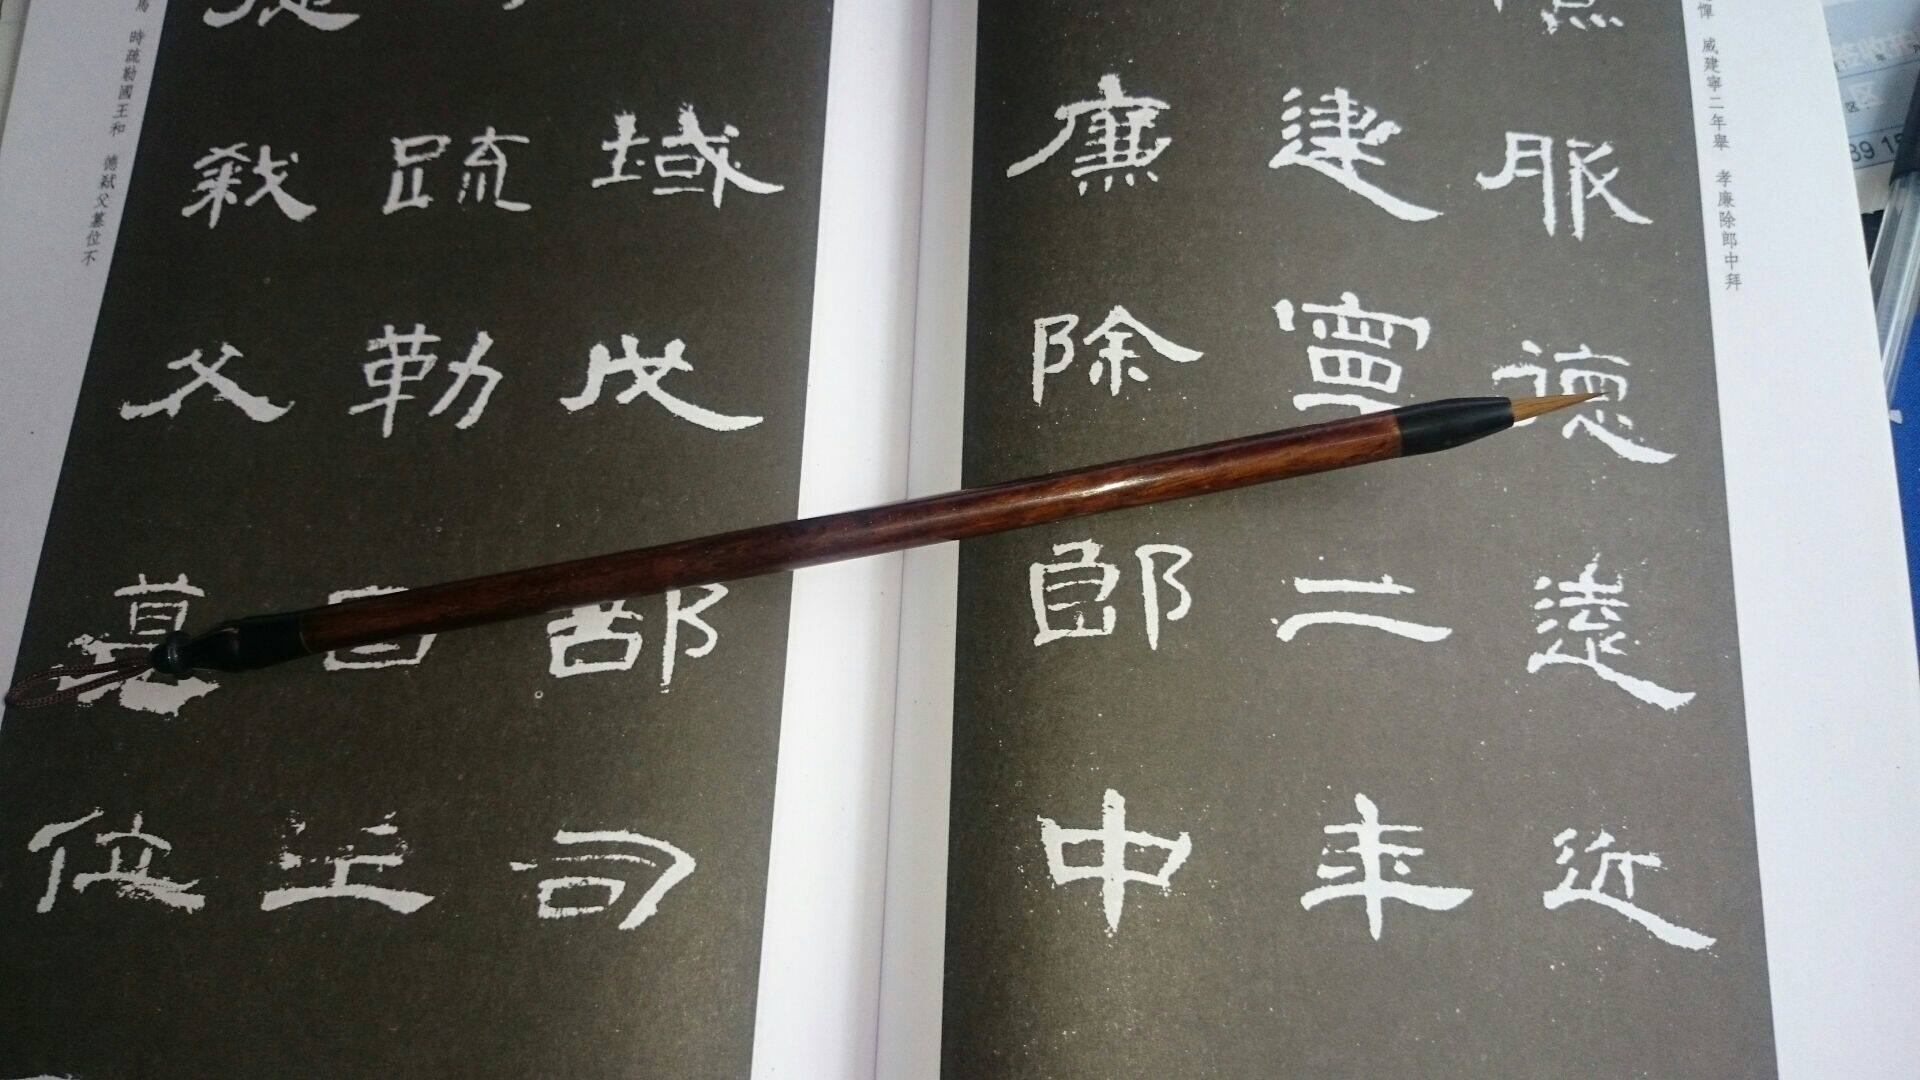 憚 威建寧二年舉 孝廉除郎中拜
服德遠近
建寧二年
廉除郎中
域戊部司
疏勒王
弑父篡位
馬 時疏勒國王和 德弑父篡位不